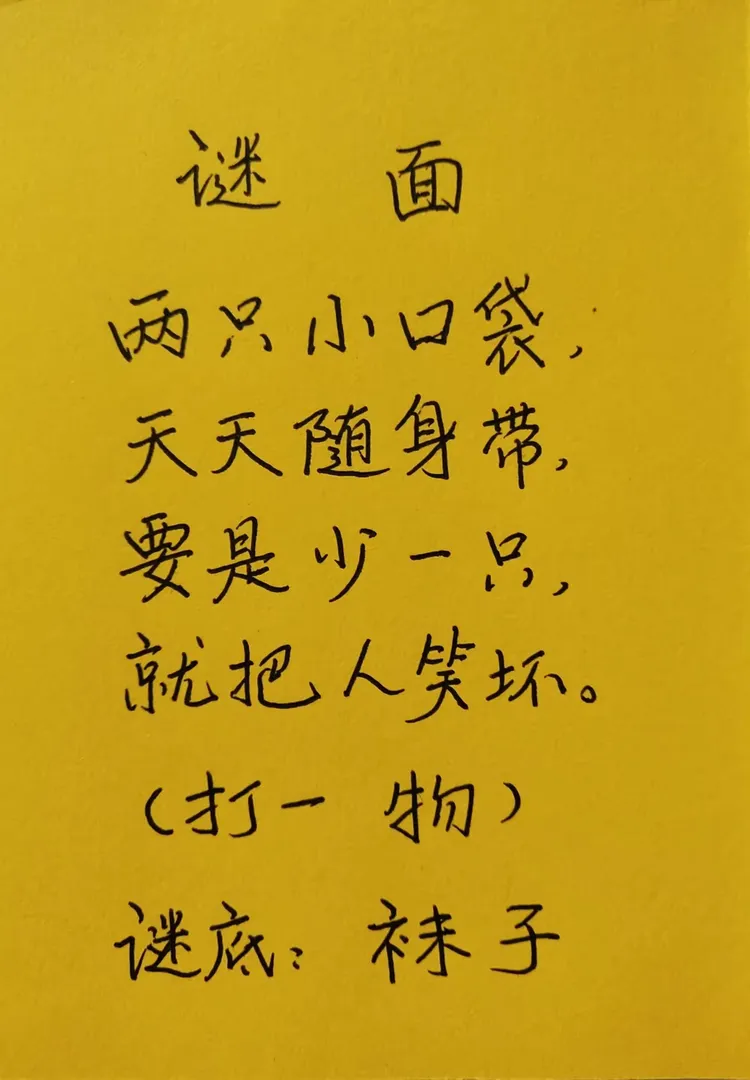 谜 面
两只小口袋，
天天随身带，
要是少一只，
就把人笑坏。
（打一 物）
谜底：袜子